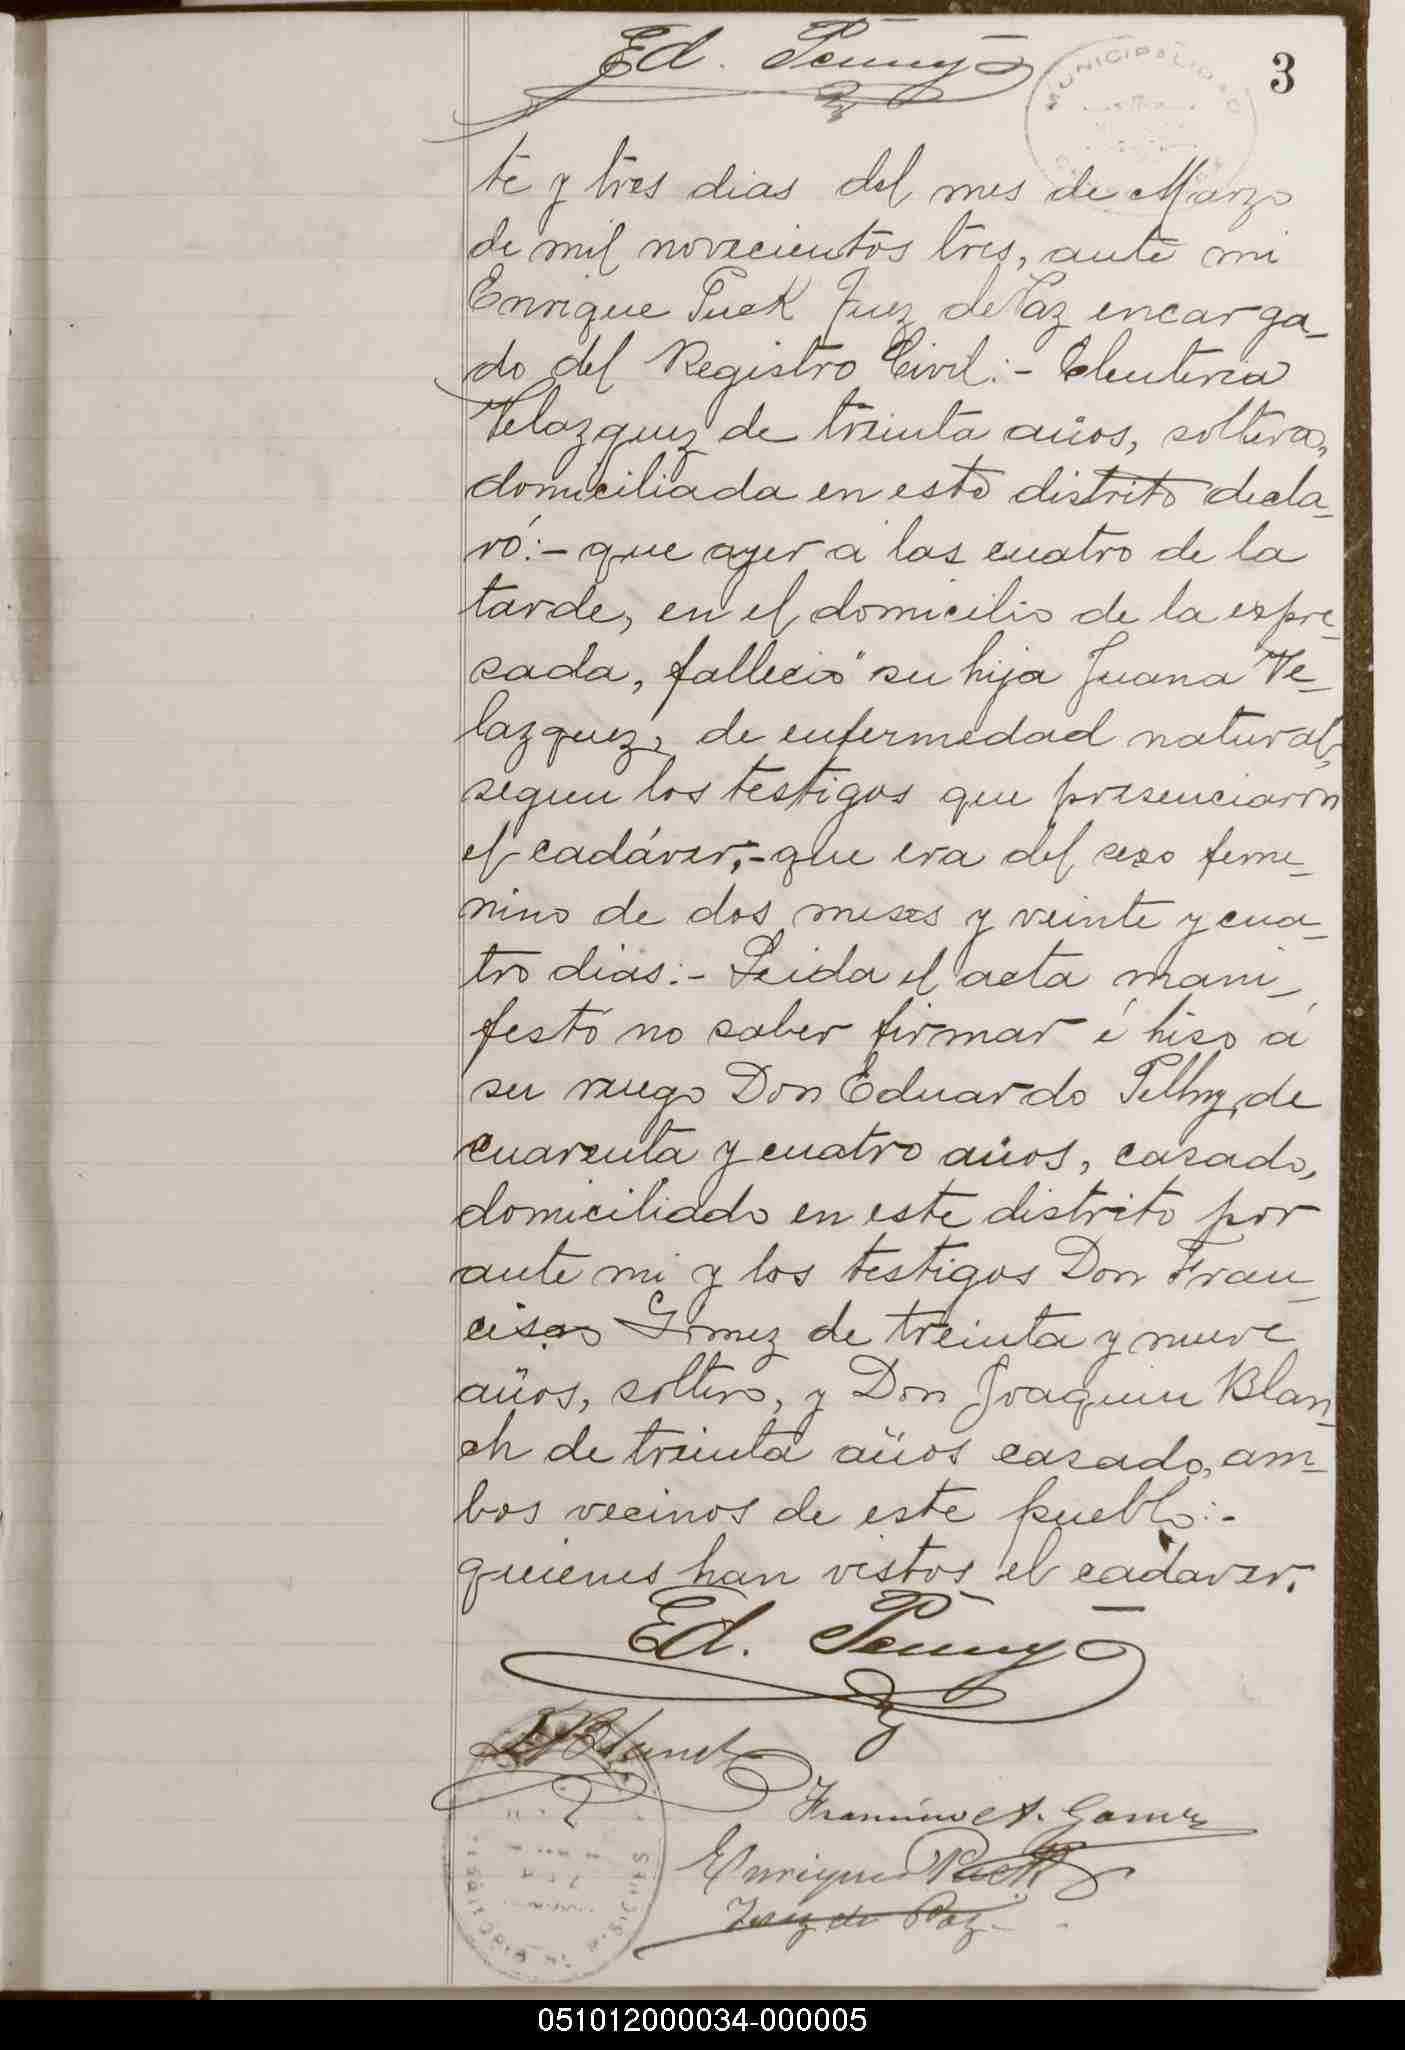 Ed. Penny
MUNICIPALIDAD
3
te y tres dias del mes de Marzo
de mil novecientos tres, ante mi
Enrique Puck Juez de Paz encarga_
do del Registro Civil:- Eleuteria
Velazquez de treinta años, soltera,
domiciliada en este distrito decla_
ró:- que ayer a las cuatro de la
tarde, en el domicilio de la expre_
sada, fallecio su hija Juana Ve_
lazquez, de enfermedad natural,
segun los testigos que presenciaron
el cadáver;- que era del sexo feme_
nino de dos meses y veinte y cua_
tro dias:- Leida el acta mani_
festó no saber firmar é hiso á
su ruego Don Eduardo de
cuarenta y cuatro años, casado,
domiciliado en este distrito por
ante mi y los testigos Don Fran_
cisco Gomez de treinta y nueve
años, soltero, y Don Joaquin Blan_
ch de treinta años casado, am_
bos vecinos de este pueblo:-
quienes han vistos el cadaver.
Ed. Penny
Blanch
Francisco A. Gomez
Enrique Puck
Juez de Paz
051012000034-000005